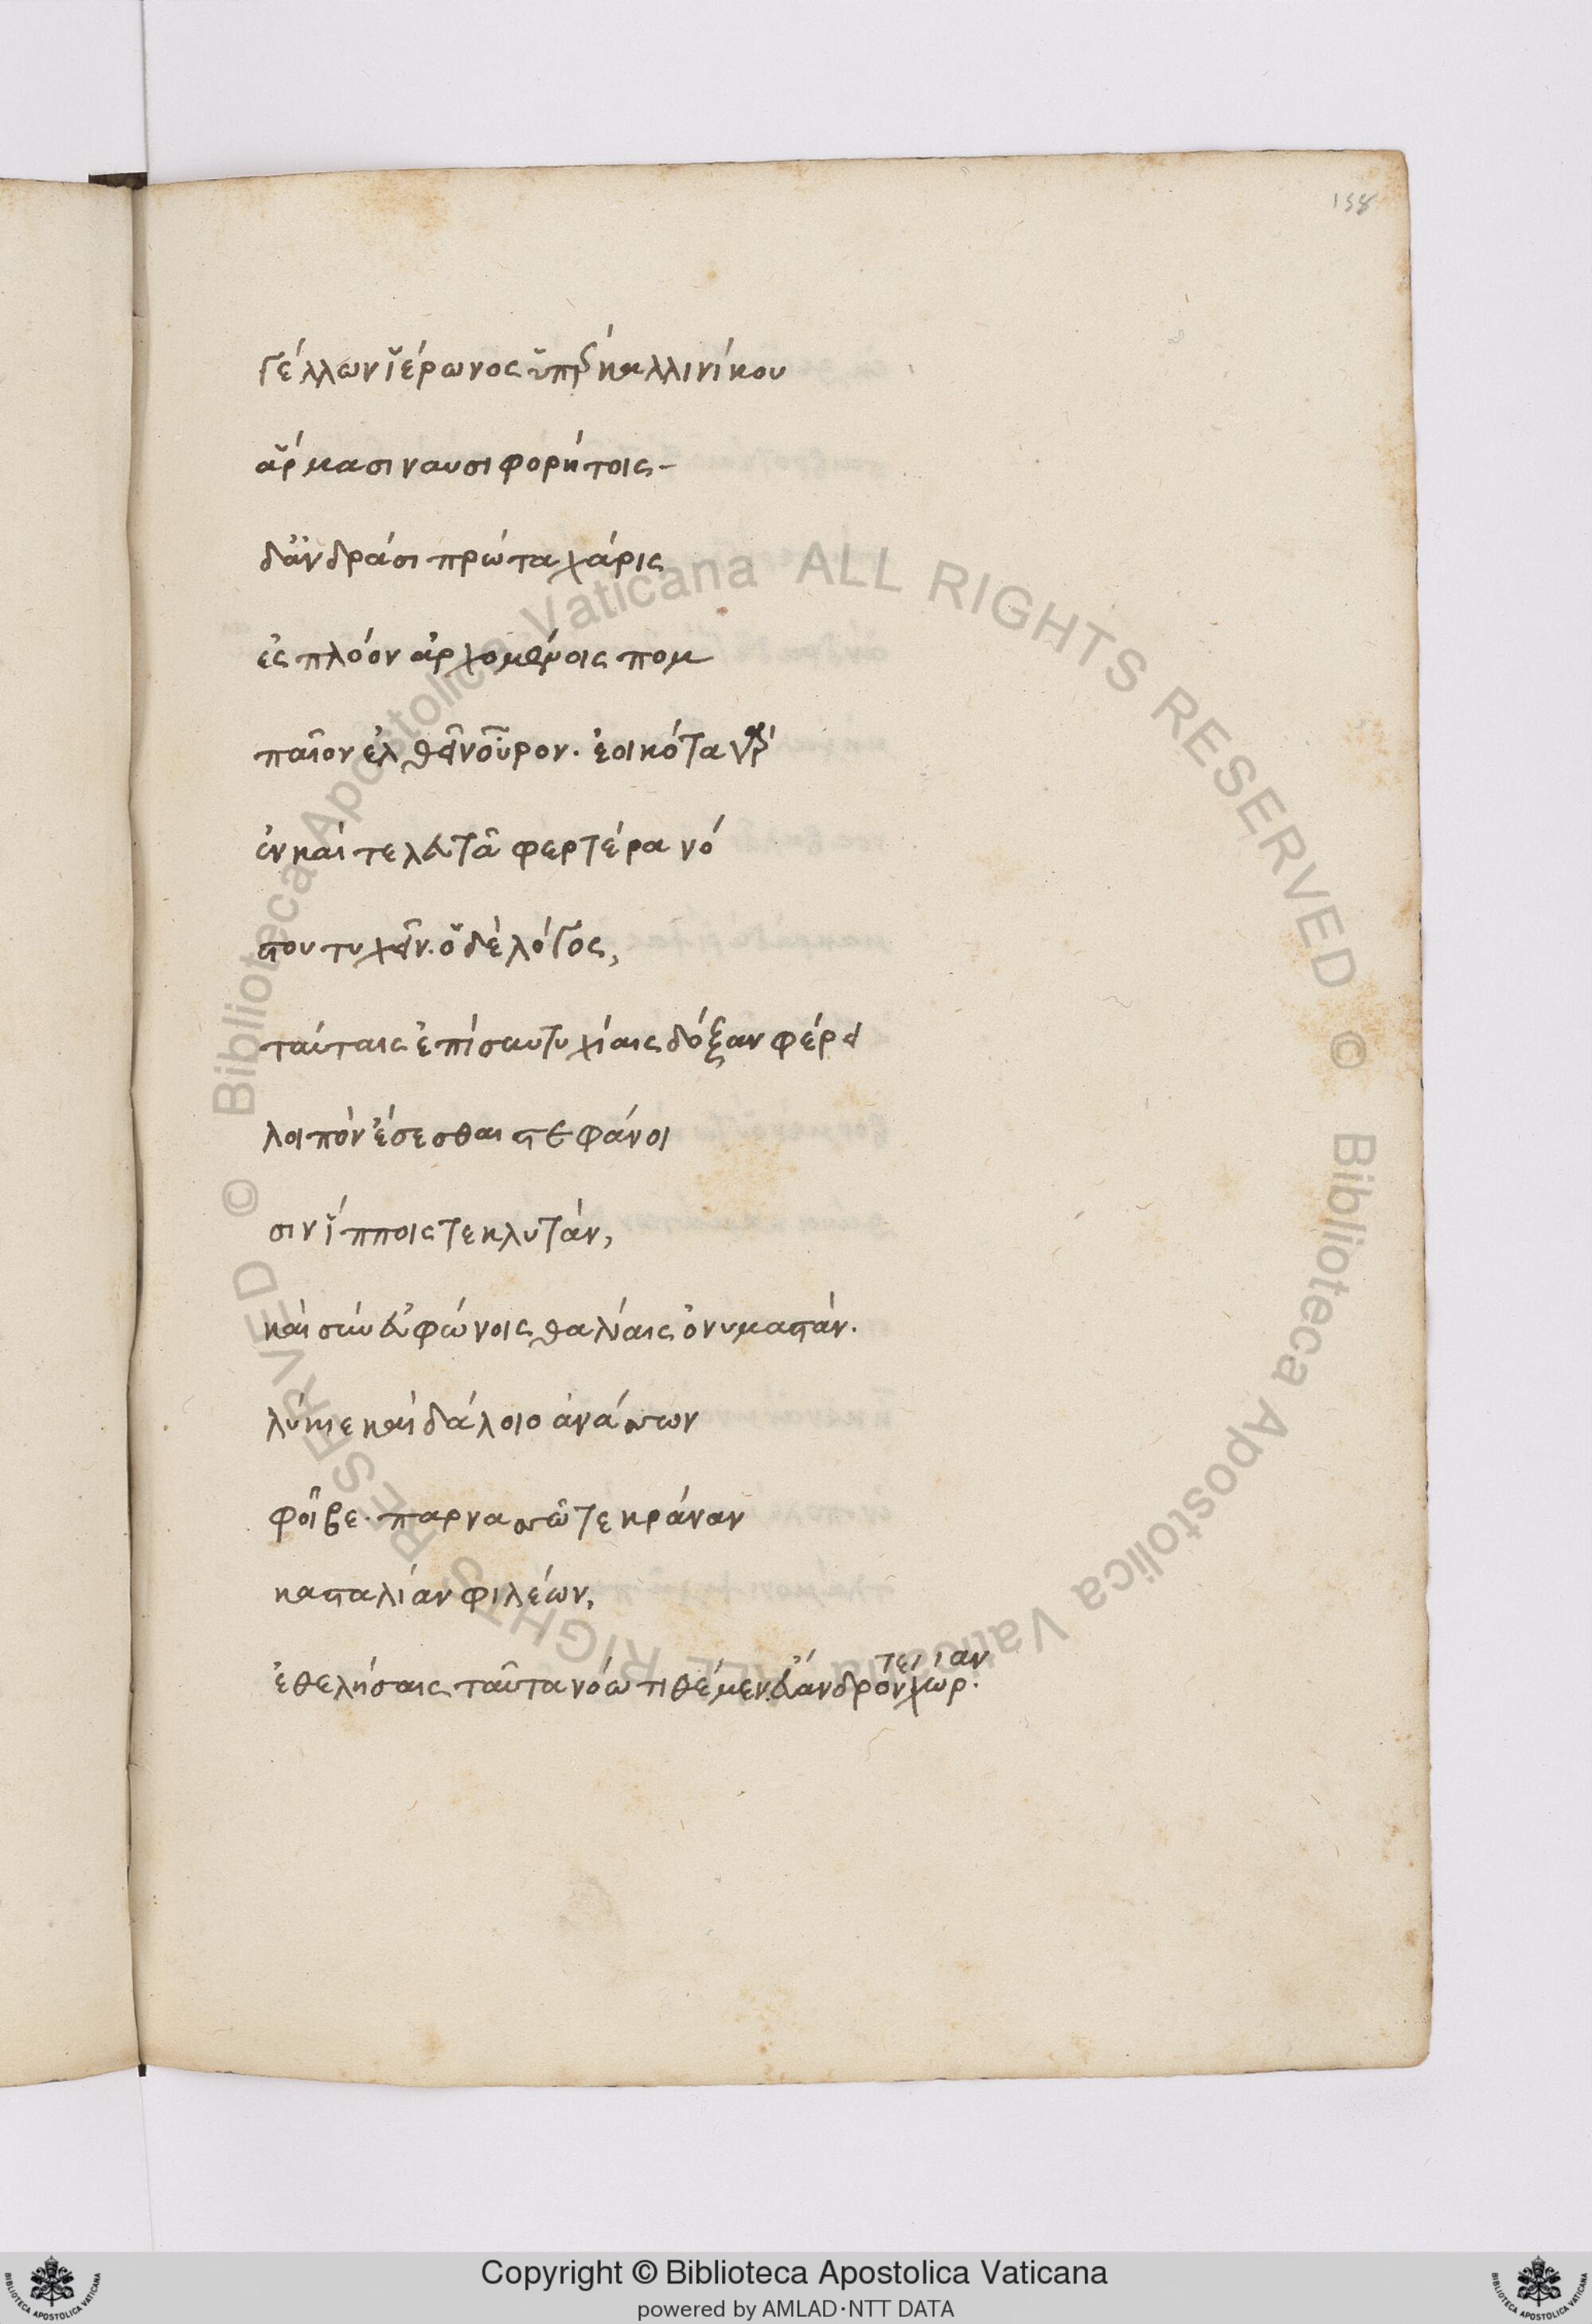 158
γέλλων ἱέρωνος ὑπὲρ καλλινίκου
ἅρμασι ναυσιφορήτοις-
δἄνδράσι πρώτα χάρις
ἐς πλόον ἀρχομένοις πομ
παῖον ἐλθεῖν οὖρον. ἐοικότα γὰρ
ἐν καὶ τελευτᾶ φερτέρα νό
στου τυχεῖν. ὁ δὲ λόγος,
ταύταις ἐπίσαυτυχίαις δόξαν φέρει
λοιπὸν ἔσεσθαι στεφάνοι
σιν ἵπποις τε κλυτάν,
καὶ σὺν εὐφώνοις θαλίαις ὀνυμαστάν.
λύκιε καὶ δάλοιο ἀνάσσων
φοῖβε. παρνασσῶ τε κράναν
κασταλίαν φιλέων,
ἐθελήσαις ταῦτα νόω τιθέμεν. εὐάνδρον χωρ.
τε ἱ αν
Biblioteca Apostolica Vaticana ALL RIGHTS RESERVED © Biblioteca Apostolica Vaticana ALL RIGHTS RESERVED ©
Copyright © Biblioteca Apostolica Vaticana
powered by AMLAD·NTT DATA
BIBLIOTECA APOSTOLICA VATICANA
BIBLIOTECA APOSTOLICA VATICANA